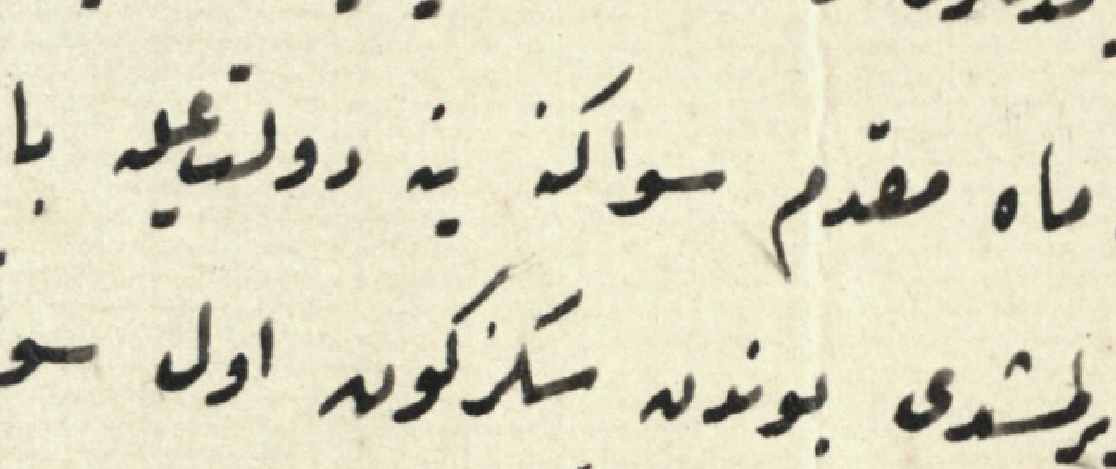 ماه مقدم سواكنه ينه دولت عليه با
بوندن سكز كون اول سو